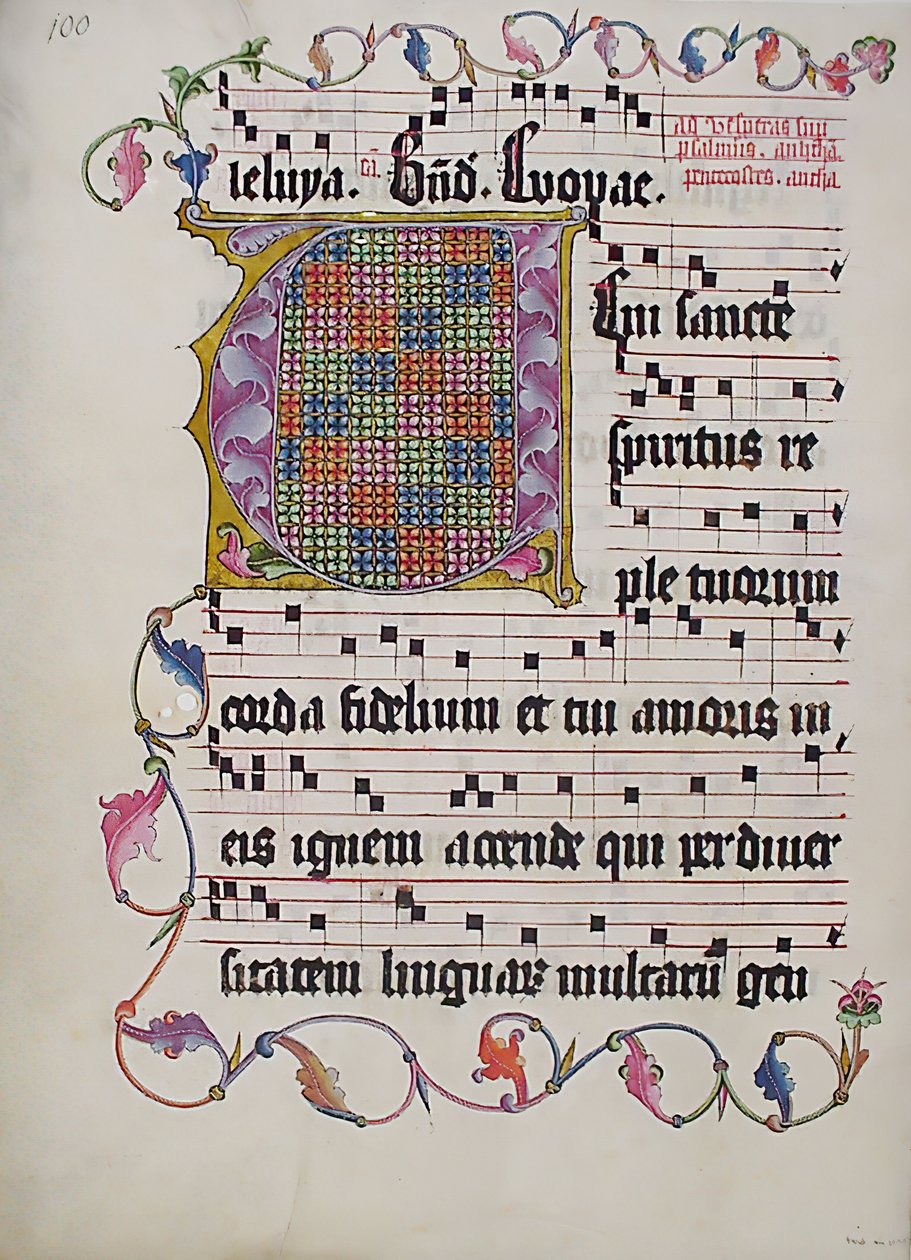 100
leluya. Bñd. Euouae.
ad vesperas sup
psalmis. antipha.
pentecostes. antipha
Eni sancte
spiritus re
ple tuorum
corda fidelium et tui amoris in
eis ignem accende qui per diuer
sitatem linguaꝝ multarū gen